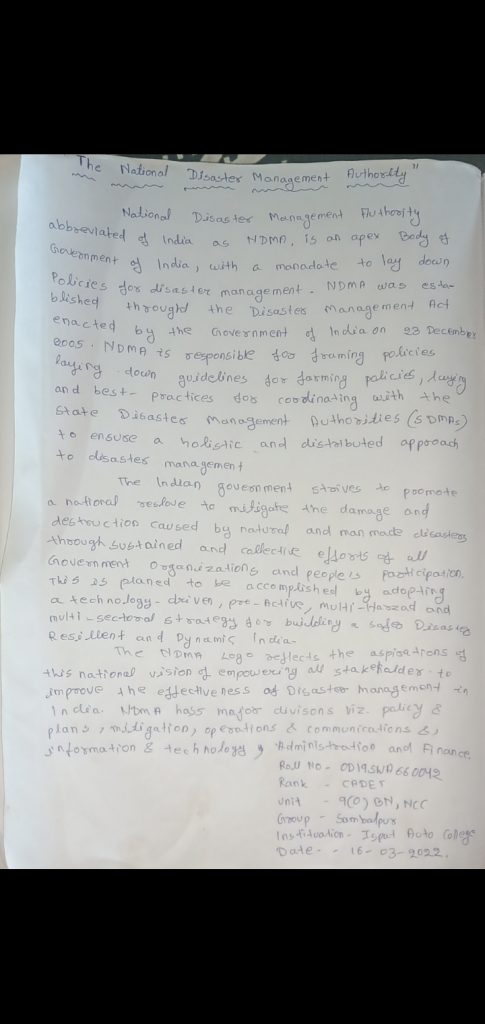 The National Disaster Management Authority"
National Disaster Management Authority
abbreviated of India as NDMA, is an apex Body of
Government of India, with a manadate to lay down
Policies for disaster management. NDMA was esta-
blished throught the Disaster Management Act
enacted by the Government of India on 23 December
2005. NDMA is responsible for framing policies
laying down guidelines for farming policies, laying
and best- practices for coordinating with the
State Disaster Management Authorities (SDMAs)
to ensure a holistic and distributed approach
to disaster management
The Indian government strives to poomote
a national reslove to mitigate the damage and
destruction caused by natural and man made disasters
through sustained and collective efforts of all
Government Organizations and people's participation.
This is planed to be accomplished by adopting
a technology-driven, pre-Active, multi-Harzad and
multi-sectoral strategy for buidding a safer Disaster
Resillent and Dynamic India-
The NDMA Logo reflects the aspirations of
this national vision of empowering all stakehalder to
improve the effectiveness of Disaster Management in
India. NDMA hass major divisons viz. policy &
plans, mitigation, operations & communications &,
information & technology, Administration and Finance.
Roll No - OD19SWA660042
Rank - CADET
Unit - 9(O) BN, NCC
Group - Sambalpur
Instituation - Ispat Auto College
Date - - 16-03-2022.